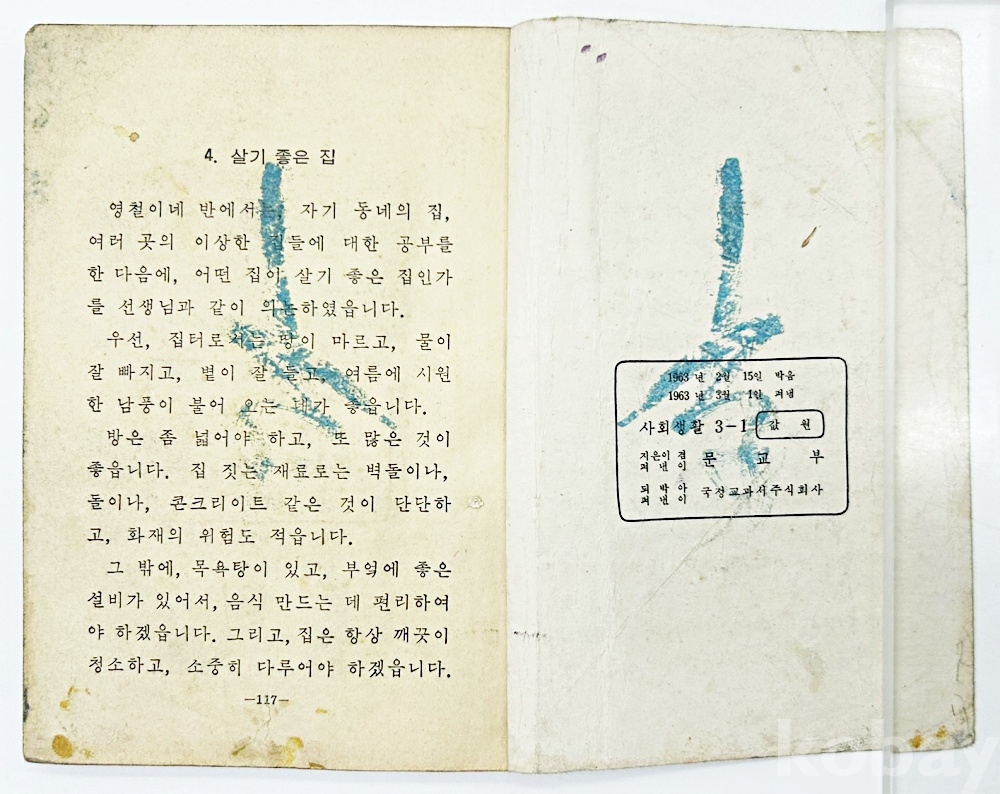 4. 살기 좋은 집
영철이네 반에서는, 자기 동네의 집,
여러 곳의 이상한 집들에 대한 공부를
한 다음에, 어떤 집이 살기 좋은 집인가
를 선생님과 같이 의논하였읍니다.
우선, 집터로서는 땅이 마르고, 물이
잘 빠지고, 볕이 잘 들고, 여름에 시원
한 남풍이 불어 오는 데가 좋읍니다.
방은 좀 넓어야 하고, 또 많은 것이
좋읍니다. 집 짓는 재료로는 벽돌이나,
돌이나, 콘크리이트 같은 것이 단단하
고, 화재의 위험도 적읍니다.
그 밖에, 목욕탕이 있고, 부엌에 좋은
설비가 있어서, 음식 만드는 데 편리하여
야 하겠읍니다. 그리고, 집은 항상 깨끗이
청소하고, 소중히 다루어야 하겠읍니다.
—117—
1963년 2월 15일 박음
1963년 3월 1일 펴냄
사회생활 3-1 값 원
지은이 겸
펴낸이 문교부
되박아
펴낸이 국정교과서주식회사
kobay